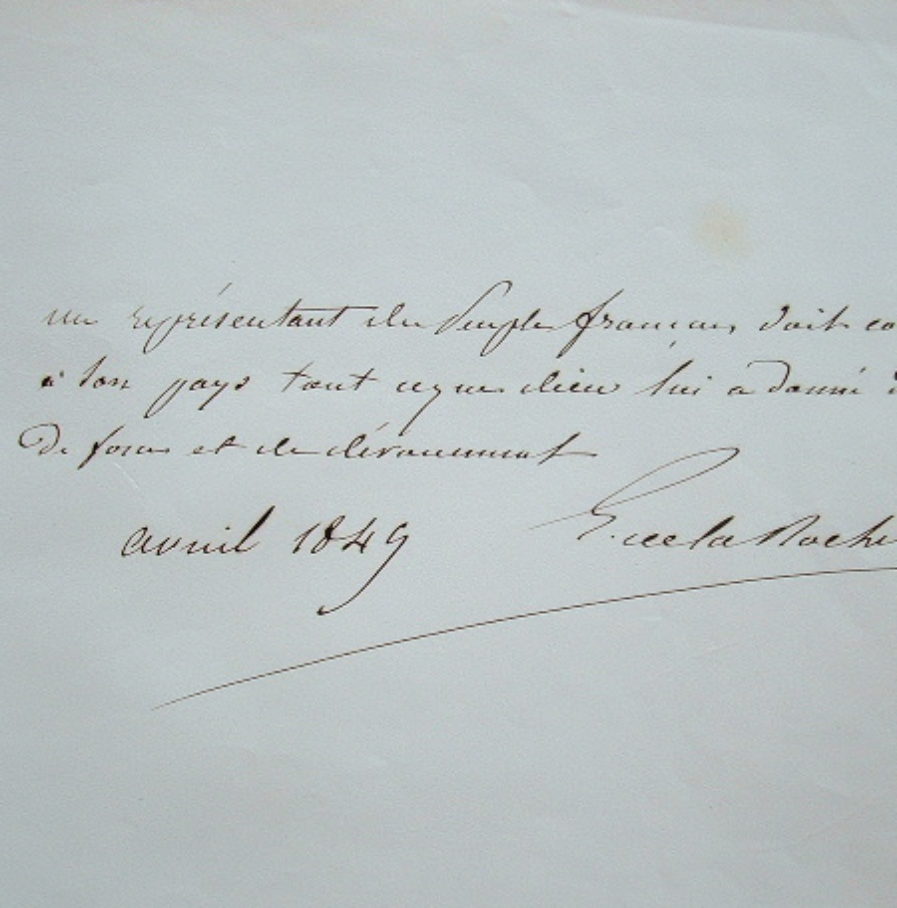 un représentant du Peuple français doit co
à son pays tout ce que dieu lui a donné d
De force et de dévouement
avril 1849
E. de la Roche